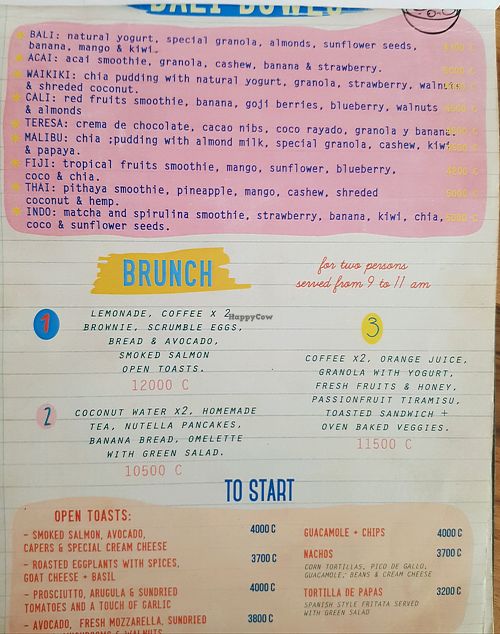 BALI BOWLS
BALI: natural yogurt, special granola, almonds, sunflower seeds,
banana, mango & kiwi.
ACAI: acai smoothie, granola, cashew, banana & strawberry.
WAIKIKI: chia pudding with natural yogurt, granola, strawberry, walnuts
& shredded coconut.
CALI: red fruits smoothie, banana, goji berries, blueberry, walnuts
& almonds
TERESA: crema de chocolate, cacao nibs, coco rayado, granola y banana
MALIBU: chia ;pudding with almond milk, special granola, cashew, kiwi
& papaya.
FIJI: tropical fruits smoothie, mango, sunflower, blueberry, 4200 C
coco & chia.
THAI: pithaya smoothie, pineapple, mango, cashew, shredded 5000 C
coconut & hemp.
INDO: matcha and spirulina smoothie, strawberry, banana, kiwi, chia, 5000 C
coco & sunflower seeds.
BRUNCH
for two persons
served from 9 to 11 am
1
LEMONADE, COFFEE X 2,
BROWNIE, SCRUMBLE EGGS,
BREAD & AVOCADO,
SMOKED SALMON
OPEN TOASTS.
12000 C
2
COCONUT WATER X2, HOMEMADE
TEA, NUTELLA PANCAKES,
BANANA BREAD, OMELETTE
WITH GREEN SALAD.
10500 C
3
COFFEE X2, ORANGE JUICE,
GRANOLA WITH YOGURT,
FRESH FRUITS & HONEY,
PASSIONFRUIT TIRAMISU,
TOASTED SANDWICH +
OVEN BAKED VEGGIES.
11500 C
HappyCow
TO START
OPEN TOASTS:
- SMOKED SALMON, AVOCADO, 4000 C
CAPERS & SPECIAL CREAM CHEESE
- ROASTED EGGPLANTS WITH SPICES, 3700 C
GOAT CHEESE + BASIL
- PROSCIUTTO, ARUGULA & SUNDRIED 4000 C
TOMATOES AND A TOUCH OF GARLIC
- AVOCADO, FRESH MOZZARELLA, SUNDRIED 3800 C
GUACAMOLE + CHIPS 4000 C
NACHOS 3700 C
CORN TORTILLAS, PICO DE GALLO,
GUACAMOLE, BEANS & CREAM CHEESE
TORTILLA DE PAPAS 3200 C
SPANISH STYLE FRITATA SERVED
WITH GREEN SALAD